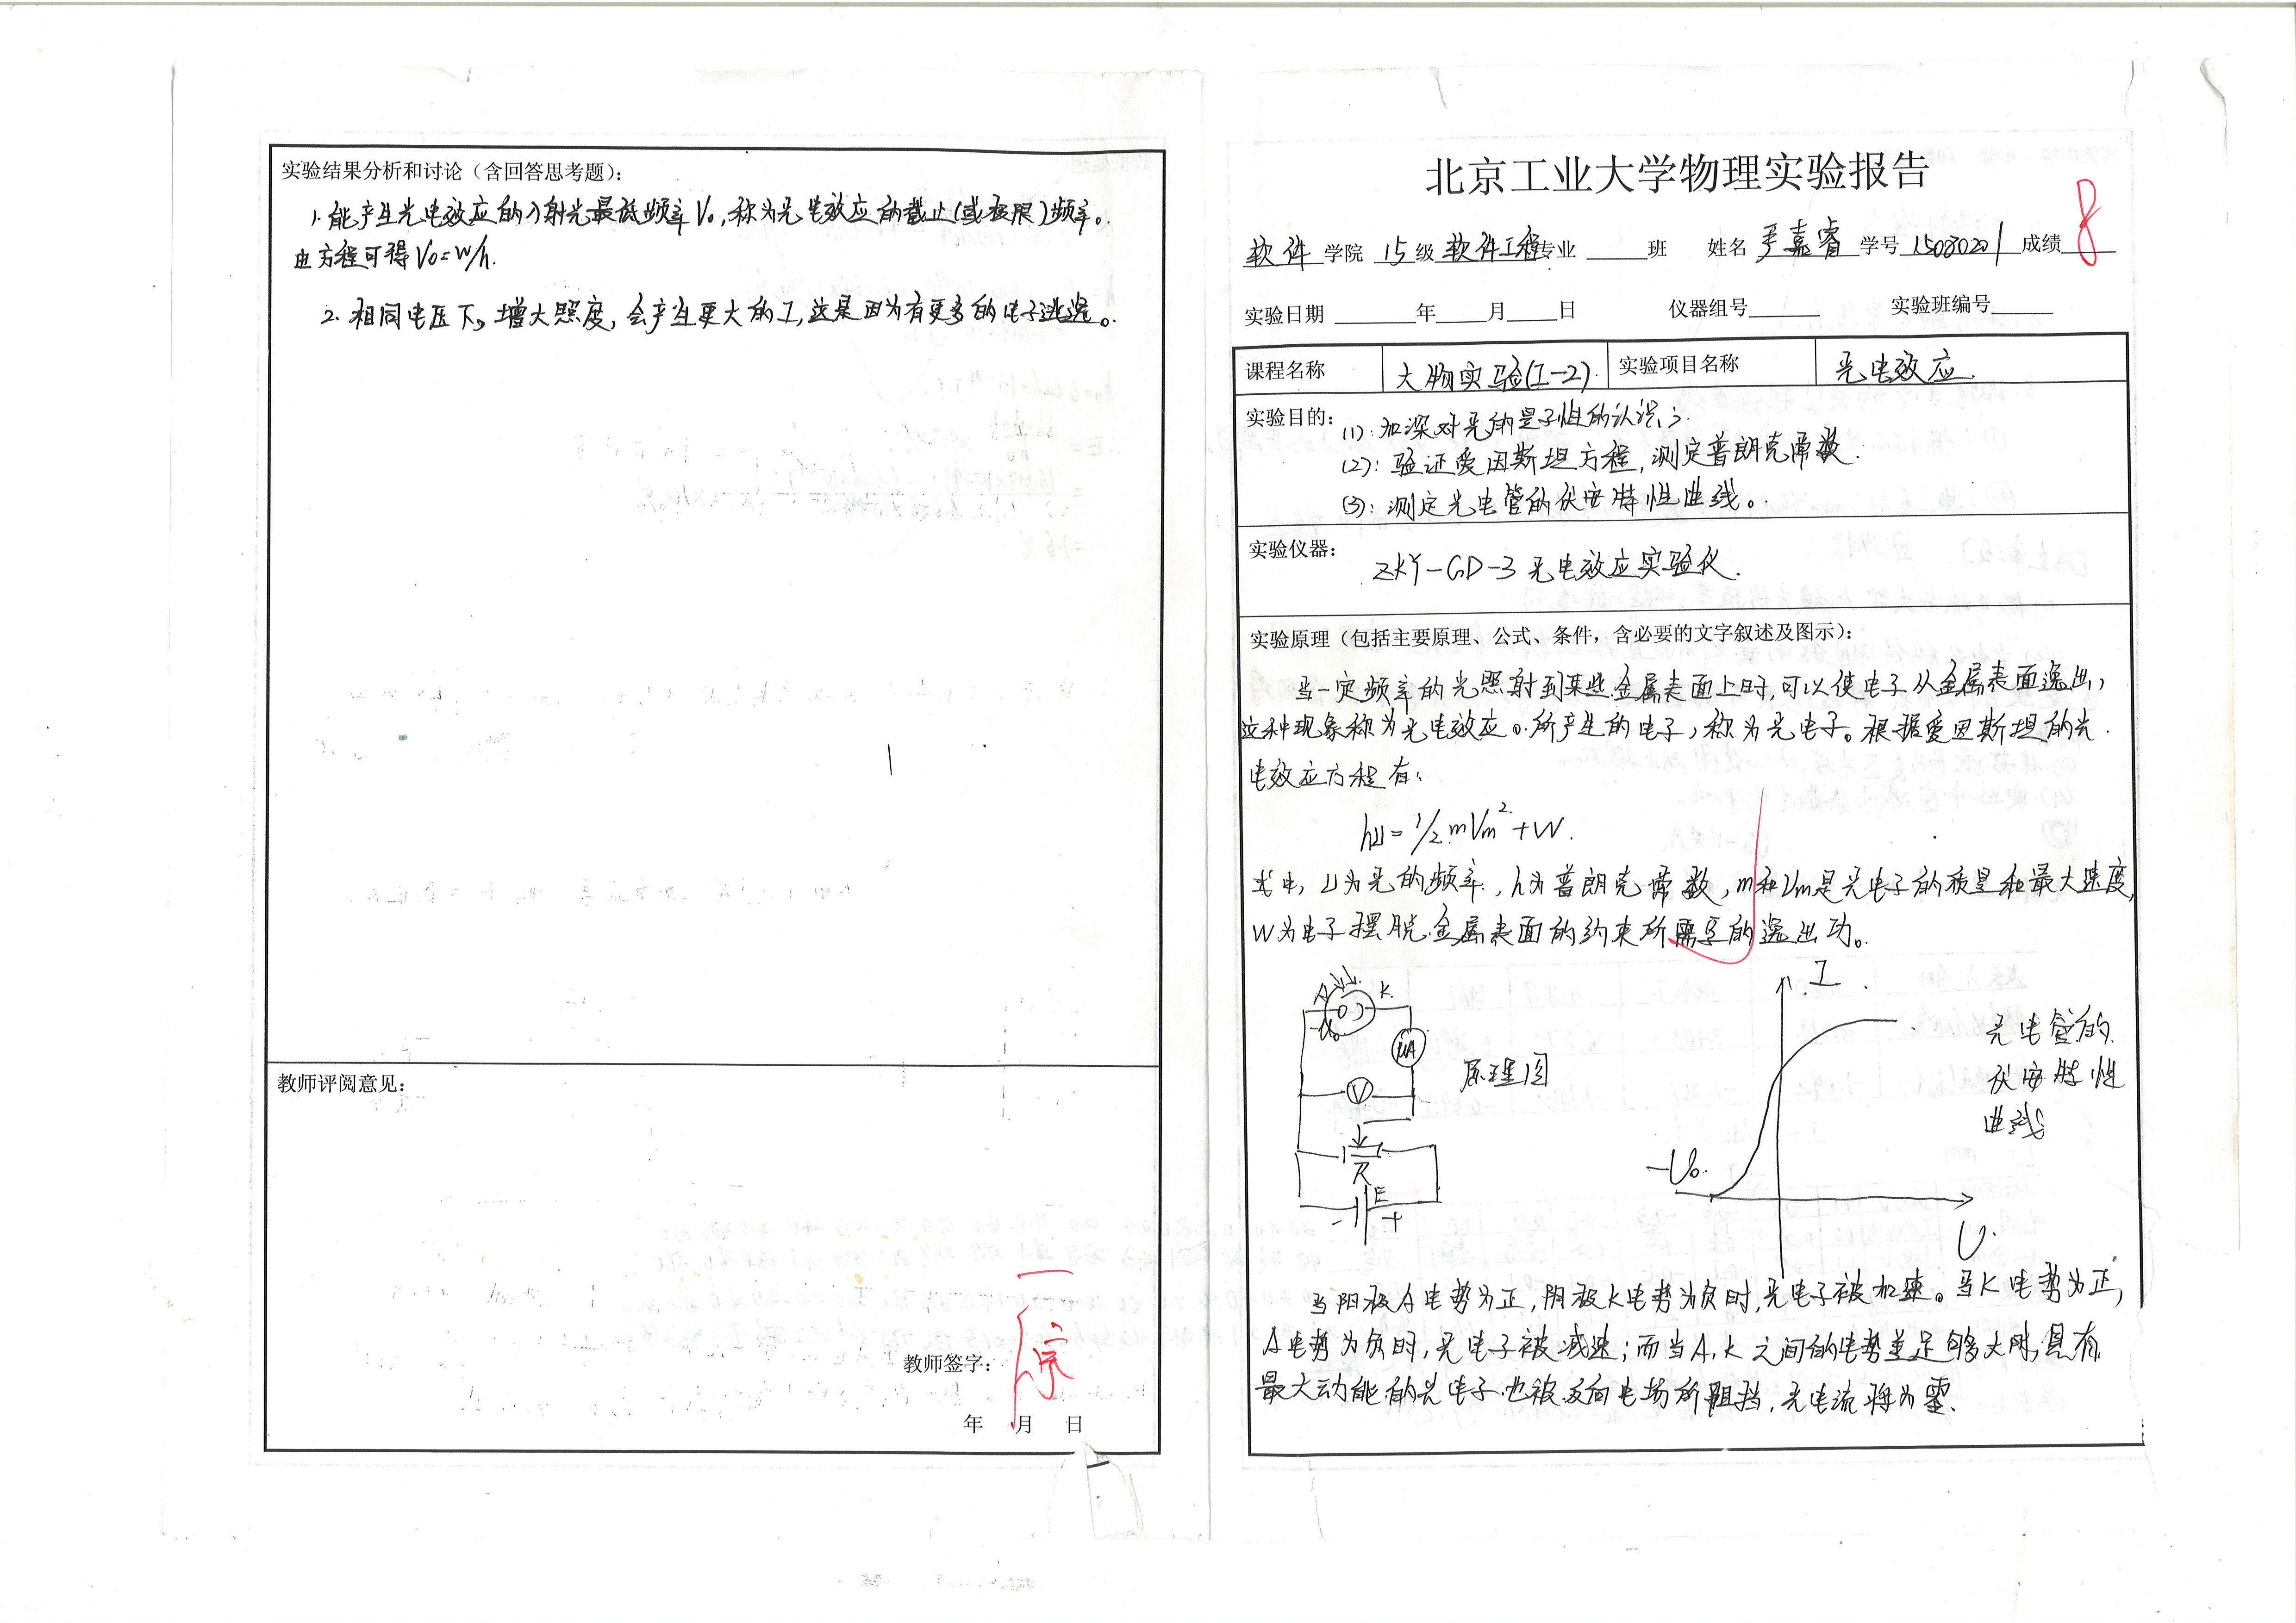 实验结果分析和讨论（含回答思考题）：
1. 能产生光电效应的入射光最低频率V₀，称为光电效应的截止（或极限）频率。
由方程可得V₀=W/h.
2. 相同电压下，增大照度，会产生更大的I，这是因为有更多的电子逃逸。
教师评阅意见：
教师签字：
年 月 日
北京工业大学物理实验报告
软件 学院 15 级 软件工程 专业 班 姓名 严嘉睿 学号 15080201 成绩 8
实验日期 年 月 日 仪器组号 实验班编号
课程名称 大物实验(I-2) 实验项目名称 光电效应
实验目的：(1)：加深对光的量子性的认识；
(2)：验证爱因斯坦方程，测定普朗克常数.
(3)：测定光电管的伏安特性曲线。
实验仪器：
ZKY-GD-3 光电效应实验仪.
实验原理（包括主要原理、公式、条件，含必要的文字叙述及图示）：
当一定频率的光照射到某些金属表面上时，可以使电子从金属表面逸出，
这种现象称为光电效应。所产生的电子，称为光电子。根据爱因斯坦的光
电效应方程有：
hυ=1/2 mVm²+W.
式中，υ为光的频率，h为普朗克常数，m和Vm是光电子的质量和最大速度，
W为电子摆脱金属表面的约束所需要的逸出功。
K.
μA
V
R
E
- +
原理图
I
-U₀.
U.
光电管的
伏安特性
曲线
当阳极A电势为正，阴极K电势为负时，光电子被加速。当K电势为正，
A电势为负时，光电子被减速；而当A，K之间的电势差足够大时，具有
最大动能的光电子也被反向电场所阻挡，光电流将为零.